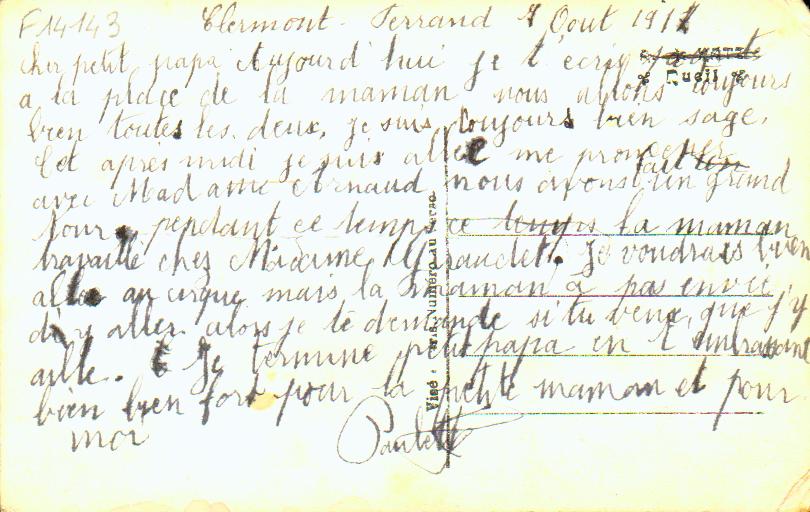 F14143
Clermont-Ferrand 7 Aout 1917
cher petit papa Aujourd'hui je t'écris
a la place de la maman nous allons toujours
bien toutes les deux, je suis toujours bien sage,
Cet après midi je suis allée me promener
avec Madame Arnaud nous avons fait un grand
tour, pendant ce temps ce temps la maman
travaille chez Madame je voudrais bien
aller au cirque mais la maman a pas envie
d'y aller alors je te demande si tu veux, que j'y
aille. Je termine petit papa en t'embrassant
bien bien fort pour la petite maman et pour
moi
Paulette
Rueil
Visé Numéro au verso